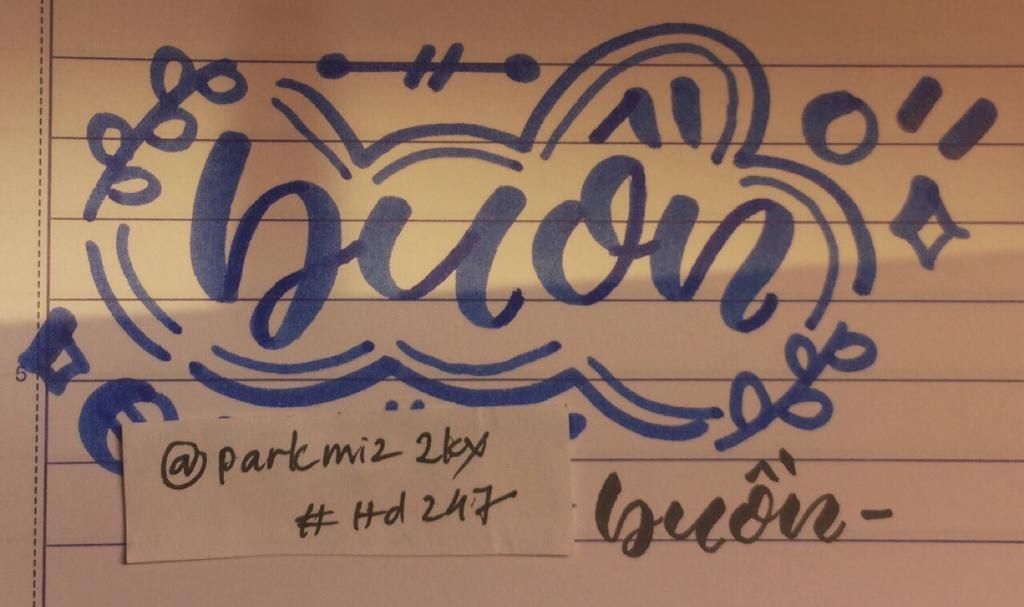 buồn
5
@parkmi2 2kx
# Hd 247
buồn-